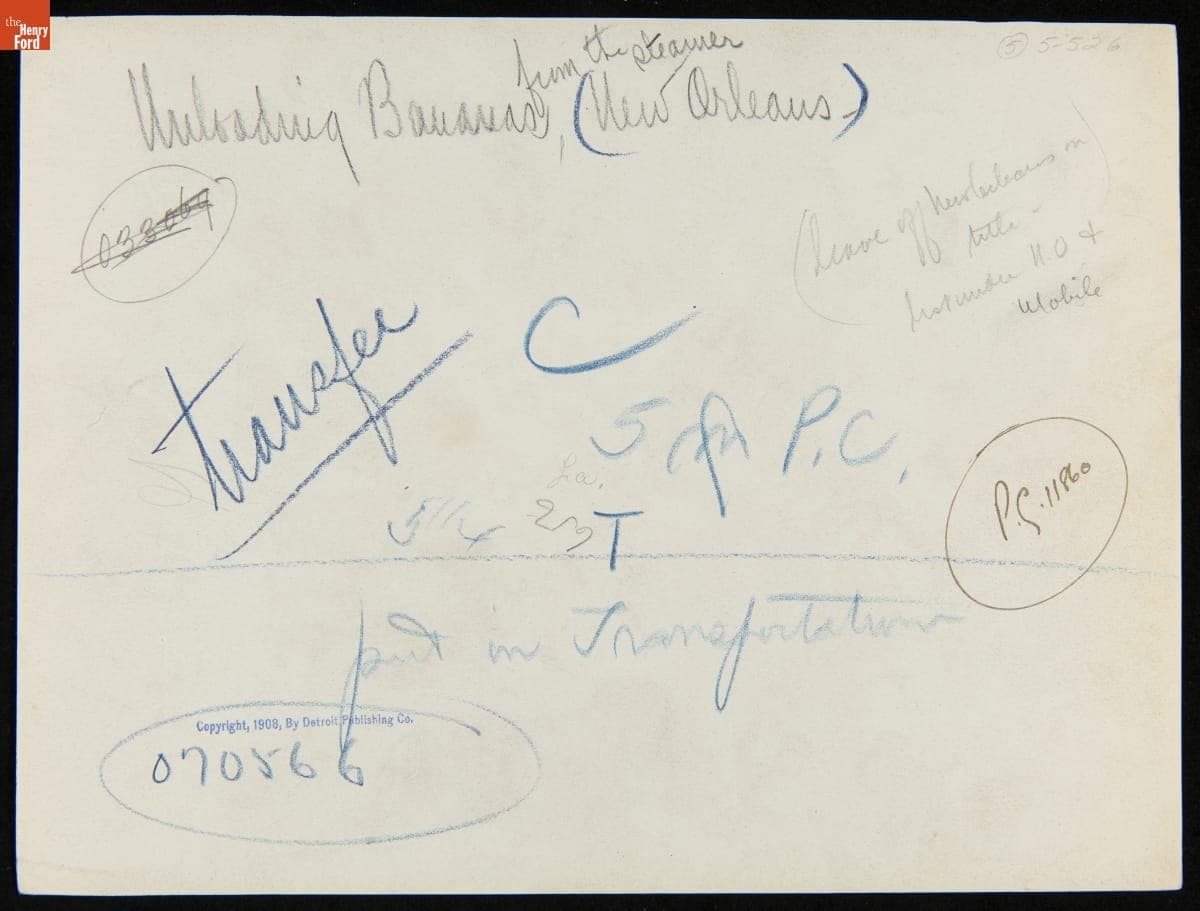 the
Henry
Ford
from the steamer
5 5-526
Unloading Bananas, (New Orleans.)
033069
(leave off New Orleans in
title -
list under N.O &
Mobile
transfer
C
5 P.C.
La.
T
P.G. 11860
put in Transportation
Copyright, 1908, By Detroit Publishing Co.
070566